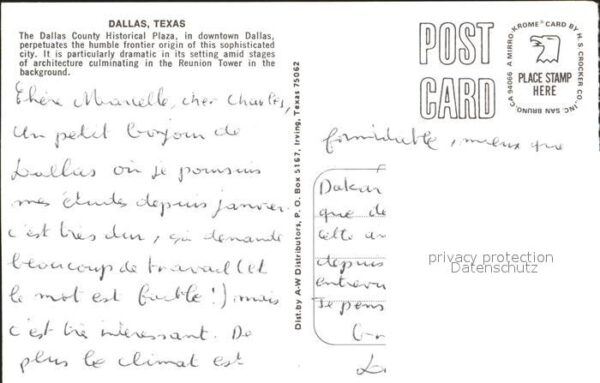 DALLAS, TEXAS
The Dallas County Historical Plaza, in downtown Dallas,
perpetuates the humble frontier origin of this sophisticated
city. It is particularly dramatic in its setting amid stages
of architecture culminating in the Reunion Tower in the
background.
Chère Marcelle, cher Charles,
Un petit bonjour de
Dallas où je poursuis
mes études depuis janvier.
c'est très dur, ça demande
beaucoup de travail (et
le mot est faible!) mais
c'est très intéressant. De
plus le climat est
Dist. by A-W Distributors, P. O. Box 5167, Irving, Texas 75062
POST
CARD
A MIRRO-KROME® CARD BY H. S. CROCKER CO., INC. SAN BRUNO, CA 94066
PLACE STAMP
HERE
formidable, mieux que
Dakar
que de
cette
depuis
Je pens
privacy protection
Datenschutz